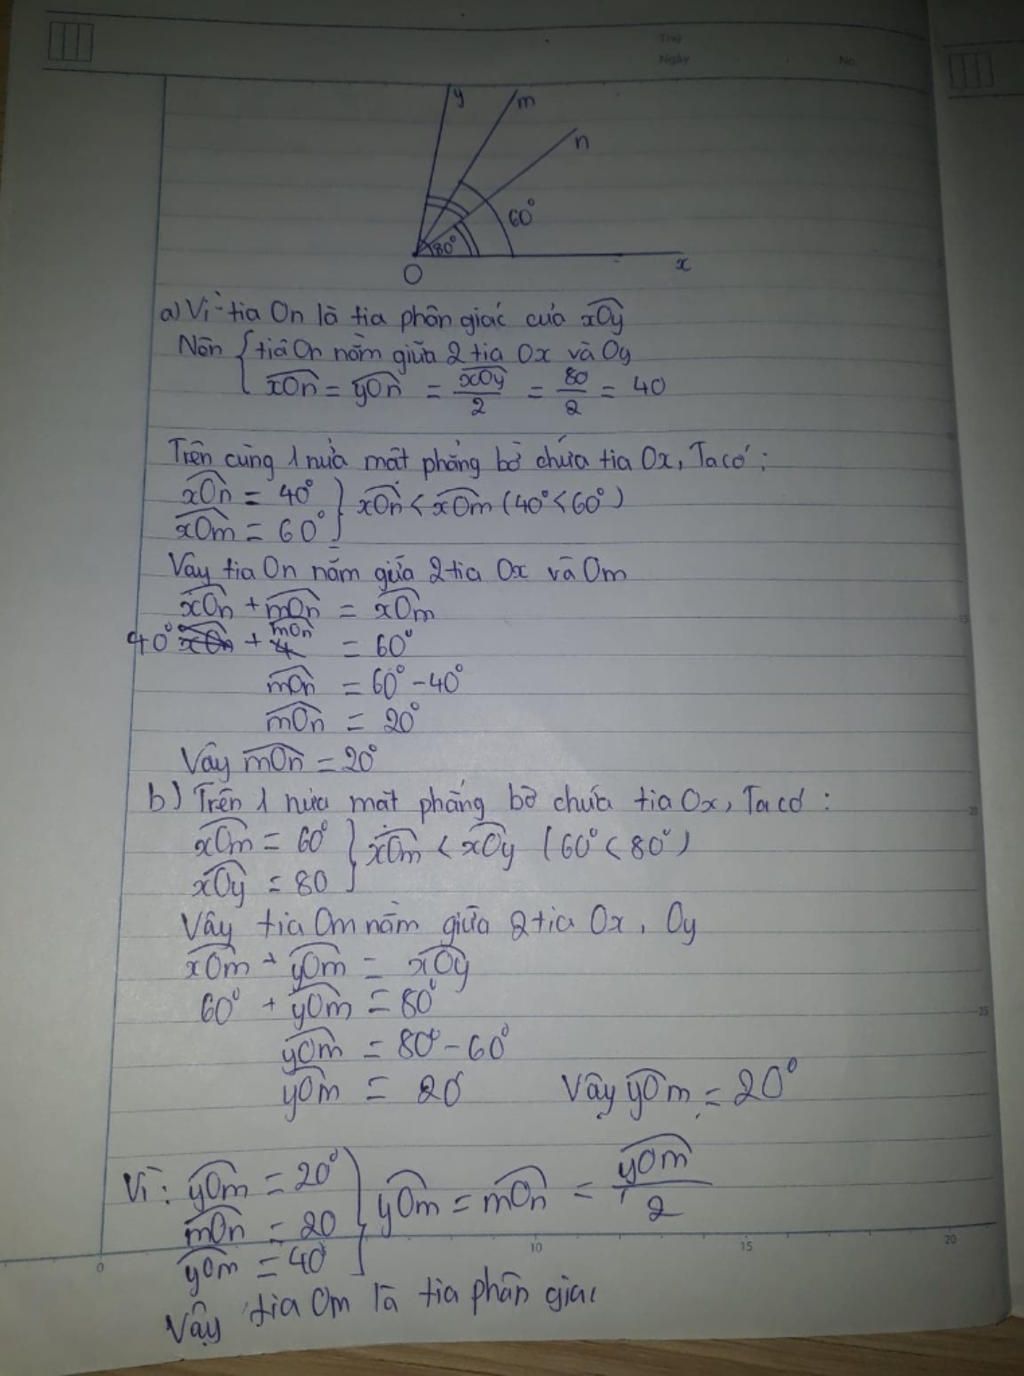 Thứ
Ngày
No.
y
m
n
60°
80°
O
x
a) Vì tia On là tia phân giác của xOy
Nên { tia On nằm giữa 2 tia Ox và Oy
xOn = yOn = xOy/2 = 80/2 = 40
Trên cùng 1 nửa mặt phẳng bờ chứa tia Ox, Ta có :
xOn = 40° } xOn < xOm (40° < 60°)
xOm = 60°
Vậy tia On nằm giữa 2 tia Ox và Om
xOn + mOn = xOm
40° + mOn = 60°
mOn = 60° - 40°
mOn = 20°
Vậy mOn = 20°
b) Trên 1 nửa mặt phẳng bờ chứa tia Ox, Ta có :
xOm = 60° } xOm < xOy (60° < 80°)
xOy = 80
Vậy tia Om nằm giữa 2 tia Ox, Oy
xOm + yOm = xOy
60° + yOm = 80°
yOm = 80° - 60°
yOm = 20 Vậy yOm = 20°
Vì : yOm = 20° } yOm = mOn = yOm/2
mOn = 20
yOm = 40°
Vậy tia Om là tia phân giác
0 10 15 20